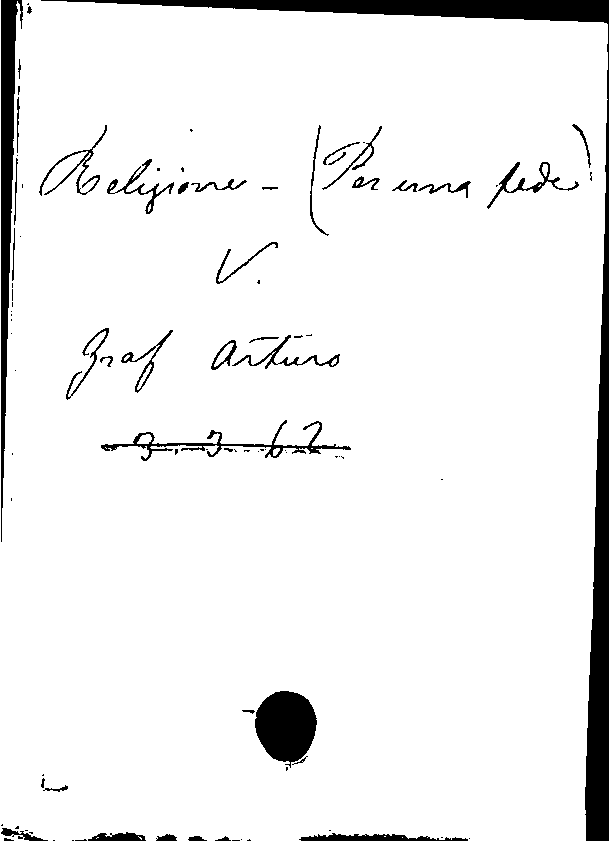 Religione - (Per una fede)
V.
Graf Arturo
3 3 62